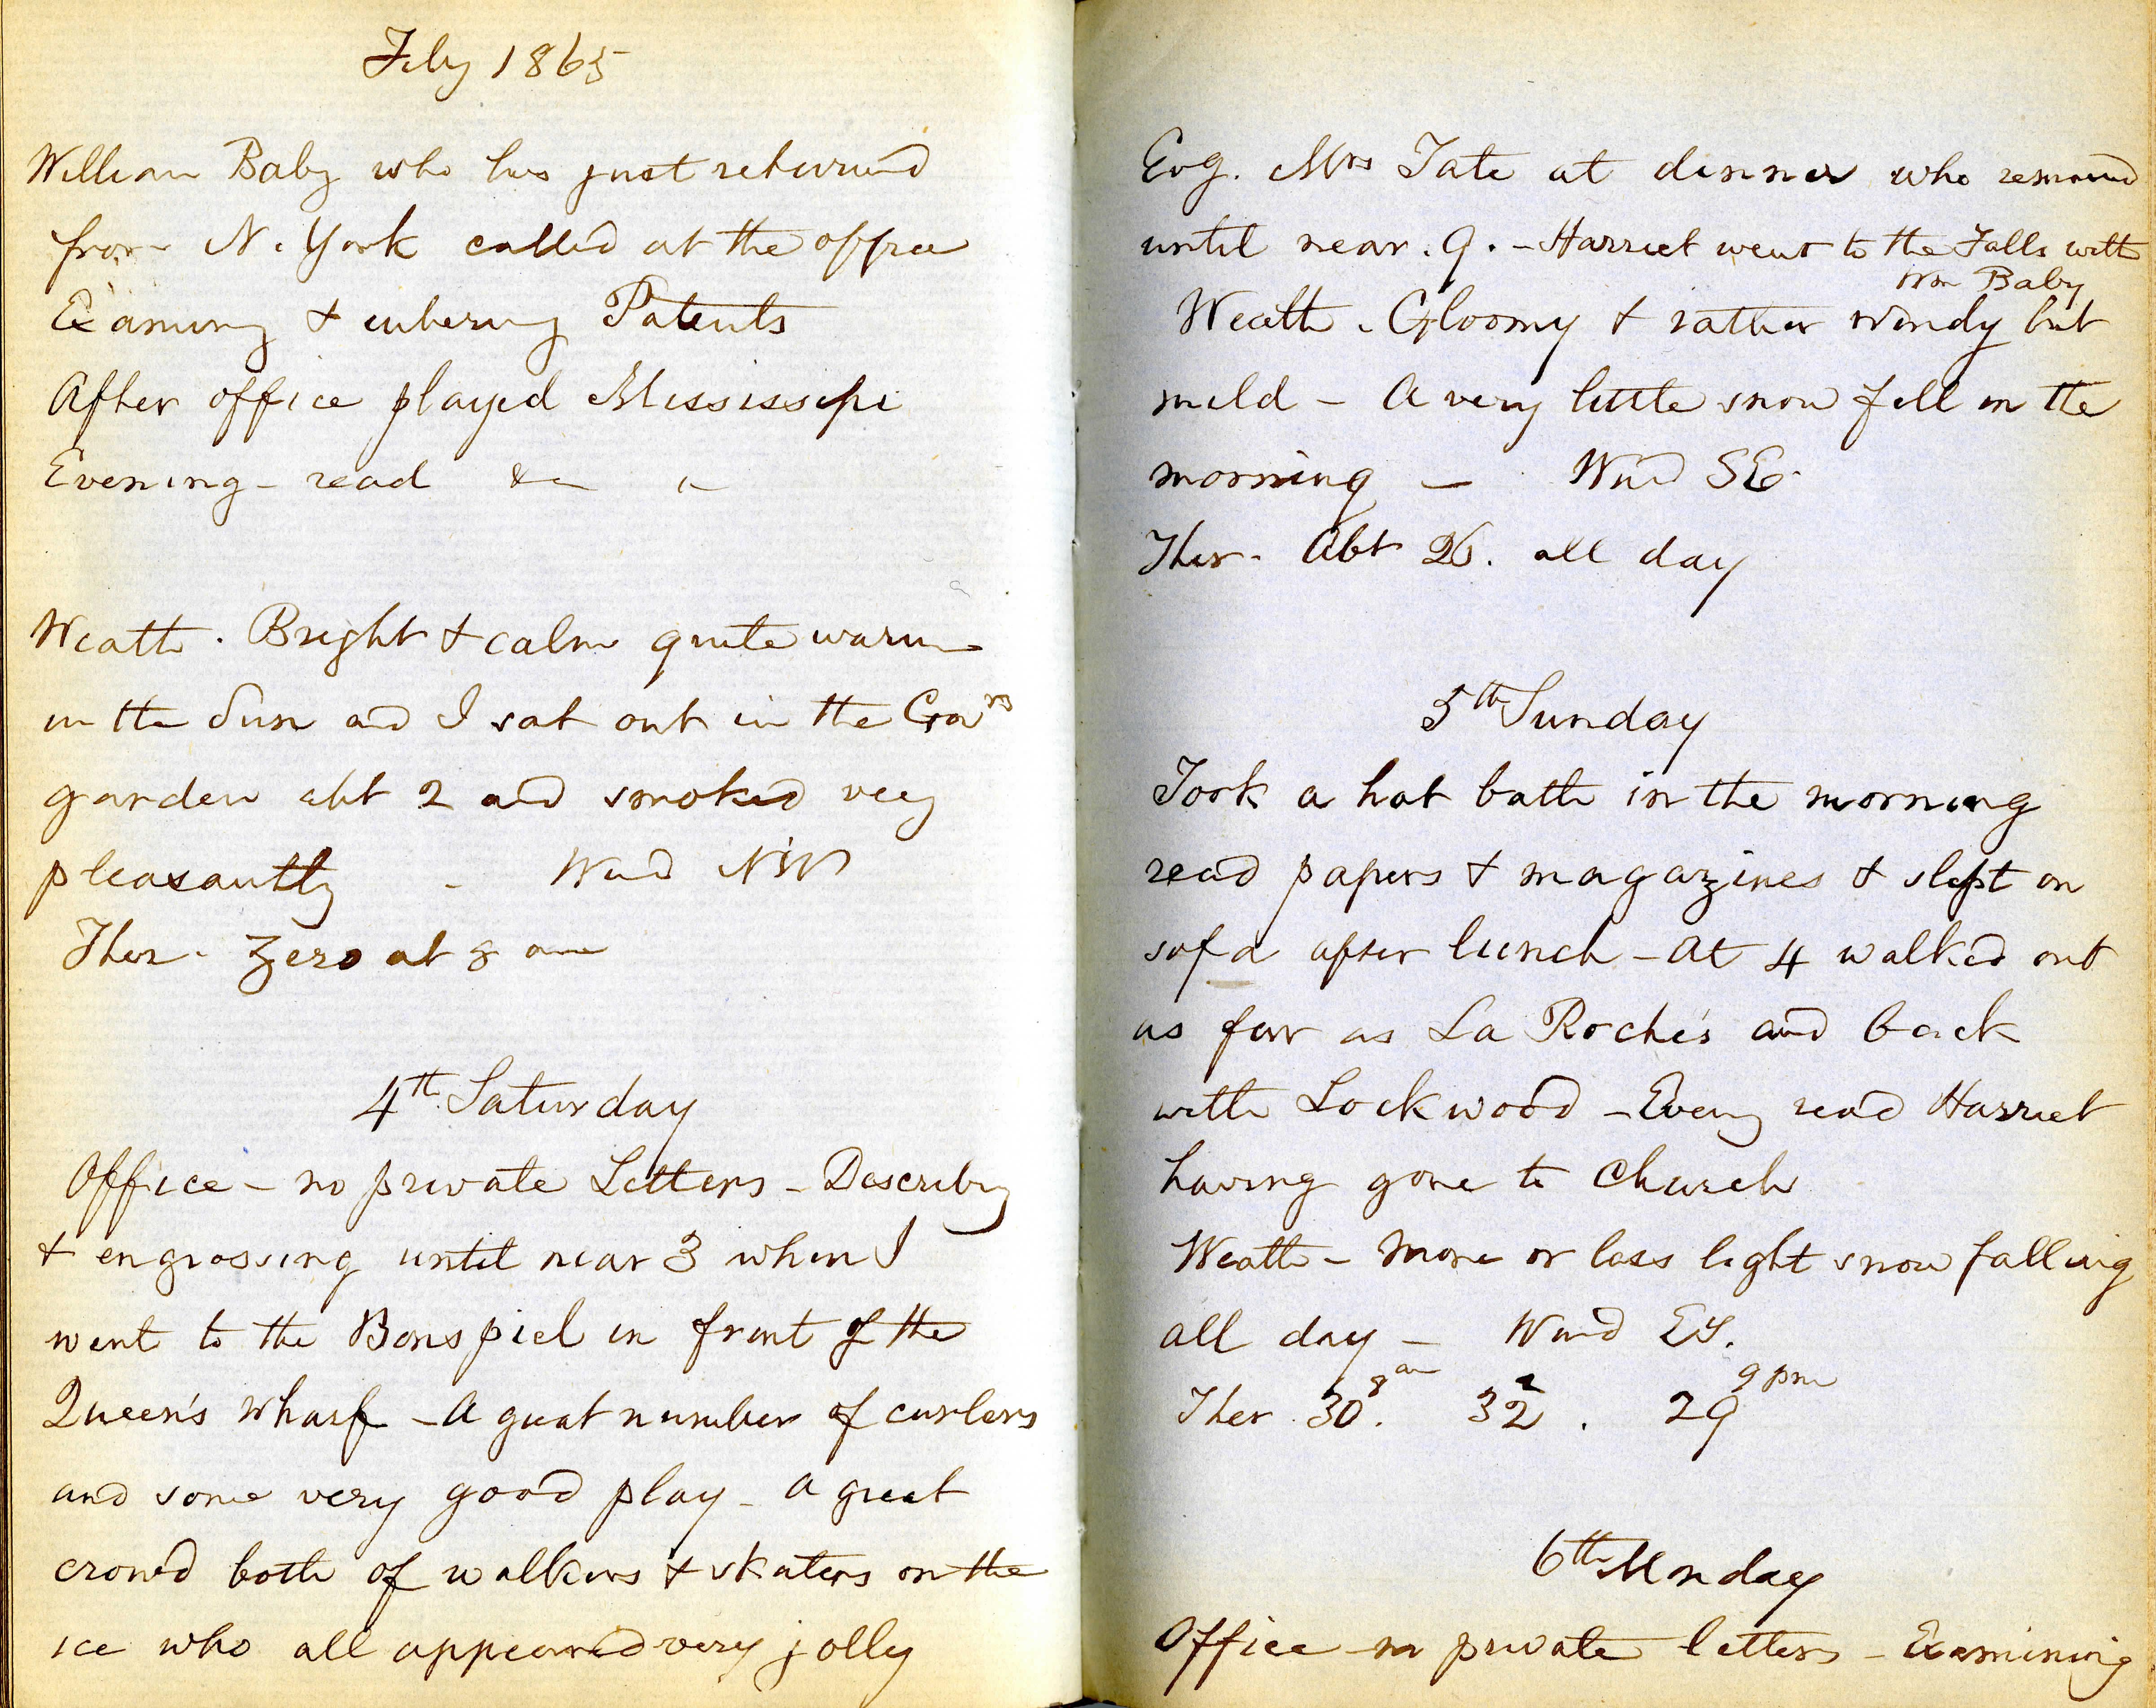 Feby 1865
William Baby who has just returned
from N. York called at the office
Examing & entering Patents
After office played Mississipi
Evening - read &c
Weath. Bright & calm quite warm
in the Sun and I sat out in the
garden abt 2 and smoked very
pleasantly - Wind NW
Ther. Zero at 8 am
4th Saturday
Office - no private Letters - Describg
& engrossing until near 3 when I
went to the Bonspiel in front of the
Queen's Wharf - A great number of curlers
and some very good play - a great
crowd both of walkers & skaters on the
ice who all appeared very jolly
Evg. Mrs Tate at dinner who remained
until near 9. - Harriet went to the Falls with
Wm Baby
Weath. Gloomy & rather windy but
mild - A very little snow fell in the
morning - Wind SE.
Ther. Abt 26. all day
5th Sunday
Took a hot bath in the morning
read papers & magazines & slept on
sofa after lunch - At 4 walked out
as far as La Roche's and back
with Lockwood - Eveng read Harriet
having gone to Church
Weath - More or less light snow falling
all day - Wind Ey.
Ther. 30 8am. 32 2. 29 9pm
6th Monday
Office no private letters - Examining